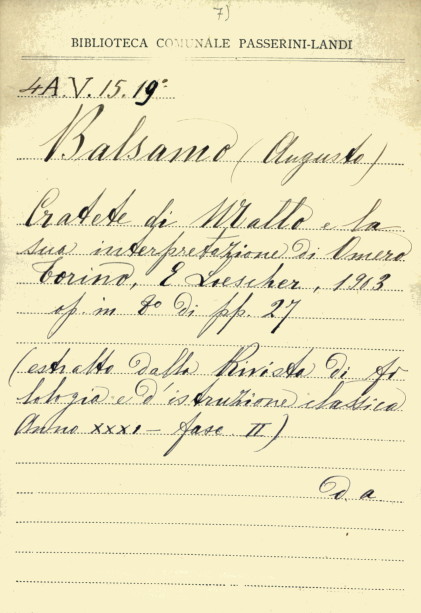 7)
BIBLIOTECA COMUNALE PASSERINI-LANDI
4A.V.15.19°
Balsamo (Augusto)
Cratete di Mallo e la
sua interpretazione di Omero
Torino, E Loescher, 1903
op. in 8° di pp. 27
(estratto dalla Rivista di fi
lologia e d'istruzione classica
Anno XXXI - fasc. II)
d. a.